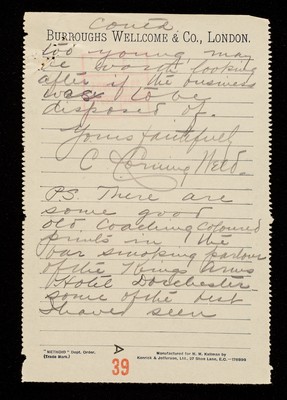 Contd.
BURROUGHS WELLCOME & CO., LONDON.
too young, may
be worth looking
after if the business
was to be
disposed of.
Yours faithfully
C
P.S. There are
some good
old Coaching Coloured
prints in the
bar smoking parlour
of the Kings Arms
Hotel Dorchester
some of the best
I have seen
"METHOIN" Dept. Order.
(Trade Mark.)
Manufactured for
Kenrick & Jefferson, Ltd.,
39